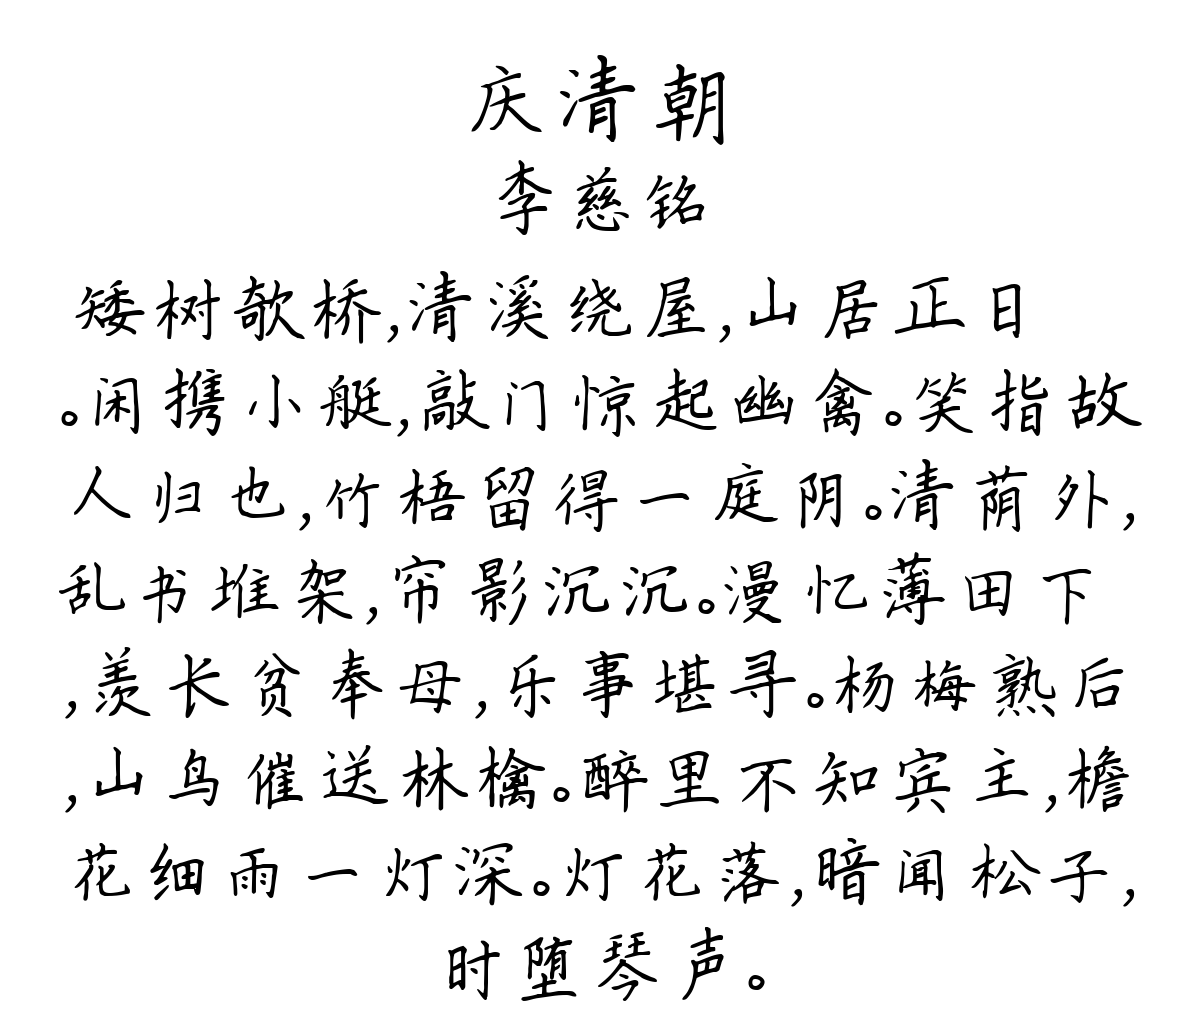 庆清朝
李慈铭
矮树欹桥,清溪绕屋,山居正日
。闲携小艇,敲门惊起幽禽。笑指故
人归也,竹梧留得一庭阴。清荫外,
乱书堆架,帘影沉沉。漫忆薄田下
,羡长贫奉母,乐事堪寻。杨梅熟后
,山鸟催送林檎。醉里不知宾主,檐
花细雨一灯深。灯花落,暗闻松子,
时堕琴声。